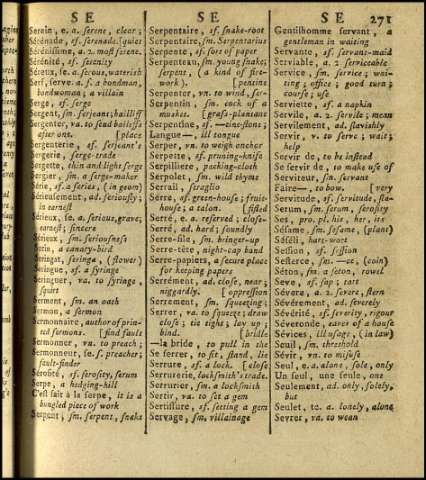 S E
S E
S E
271
Serein, e. a. serene, clear;
Sérénade, sf. serenade. [quiet
Sérénissime, a. 2. most serene.
Sérénité, sf. serenity
Séreux, se. a. serous, waterish
Serf, serve. a. f. a bondman,
bondwoman; a villain
Serge, sf. serge
Sergent, sm. serjeant; bailiff
Sergenter, va. to send bailiffs
after one. [place
Sergenterie, sf. serjeant's
Sergerie, serge-trade
Sergette, thin and light serge
Sergier, sm. a serge-maker
Série, sf. a series, (in geom)
Sérieusement, ad. seriously;
in earnest
Sérieux, se. a. serious, grave;
earnest; sincere
Sérieux, sm. seriousness
Serin, a canary-bird
Seringat, seringa, (flower)
Seringue, sf. a syringe
Seringuer, va. to syringe,
squirt
Serment, sm. an oath
Sermon, a sermon
Sermonnaire, author of prin-
ted sermons. [find fault
Sermonner, vn. to preach;
Sermonneur, se. f. preacher;
fault-finder
Sérosité, sf. serosity, serum
Serpe, a hedging-bill
C'est fait à la serpe, it is a
bungled piece of work
Serpent, sm. serpent, snake
Serpentaire, sf. snake-root
Serpentaire, sm. Serpentarius
Serpente, sf. sort of paper
Serpenteau, sm. young snake;
serpent, (a kind of fire-
work). [pentine
Serpenter, vn. to wind, ser-
Serpentin, sm. cock of a
musket. [grass-plantane
Serpentine, sf. —tine-stone;
Langue—, ill tongue
Serper, vn. to weigh anchor
Serpette, sf. pruning-knife
Serpilliere, packing-cloth
Serpolet, sm. wild thyme
Serrail, seraglio
Serre, sf. green-house; fruit-
house; a talon. [fisted
Serré, e. a. reserved; close-
Serré, ad. hard; soundly
Serre-file, sm. bringer-up
Serre-tête, night-cap band
Serre-papiers, a secure place
for keeping papers
Serrément, ad. close, near;
niggardly. [oppression
Serrement, sm. squeezing;
Serrer, va. to squeeze; draw
close; tie tight; lay up;
bind. [bridle
—la bride, to pull in the
Se serrer, to sit, stand, lie
Serrure, sf. a lock. [close
Serrurerie, locksmith's trade.
Serrurier, sm. a locksmith
Sertir, va. to set a gem
Sertissure, sf. setting a gem
Servage, sm. villainage
Gentilhomme servant, a
gentleman in waiting
Servante, sf. servant-maid
Serviable, a. 2 serviceable
Service, sm. service; wai-
ting; office; good turn;
course; use
Serviette, sf. a napkin
Servile, a. 2. servile; mean
Servilement, ad. slavishly
Servir, v. to serve; wait;
help
Servir de, to be instead
Se servir de, to make use of
Serviteur, sm. servant
Faire—, to bow. [very
Servitude, sf. servitude, sla-
Serum, sm. serum, serosity
Ses, pro. pl. his, her, its
Sésame, sm. sesame, (plant)
Séséli, hart-wort
Session, sf. session
Sesterce, sm. —ce, (coin)
Séton, sm. a seton, rowel
Seve, sf. sap; tart
Sévere, a. 2. severe, stern
Sévérement, ad. severely
Sévérité, sf. severity, rigour
Séveronde, eaves of a house
Sévices, ill usage, (in law)
Seuil, sm. threshold
Sévir, vn. to misuse
Seul, e. a. alone, sole, only
Un seul, une seule, one
Seulement, ad. only, solely,
but
Seulet, te. a. lonely, alone
Sevrer, va. to wean